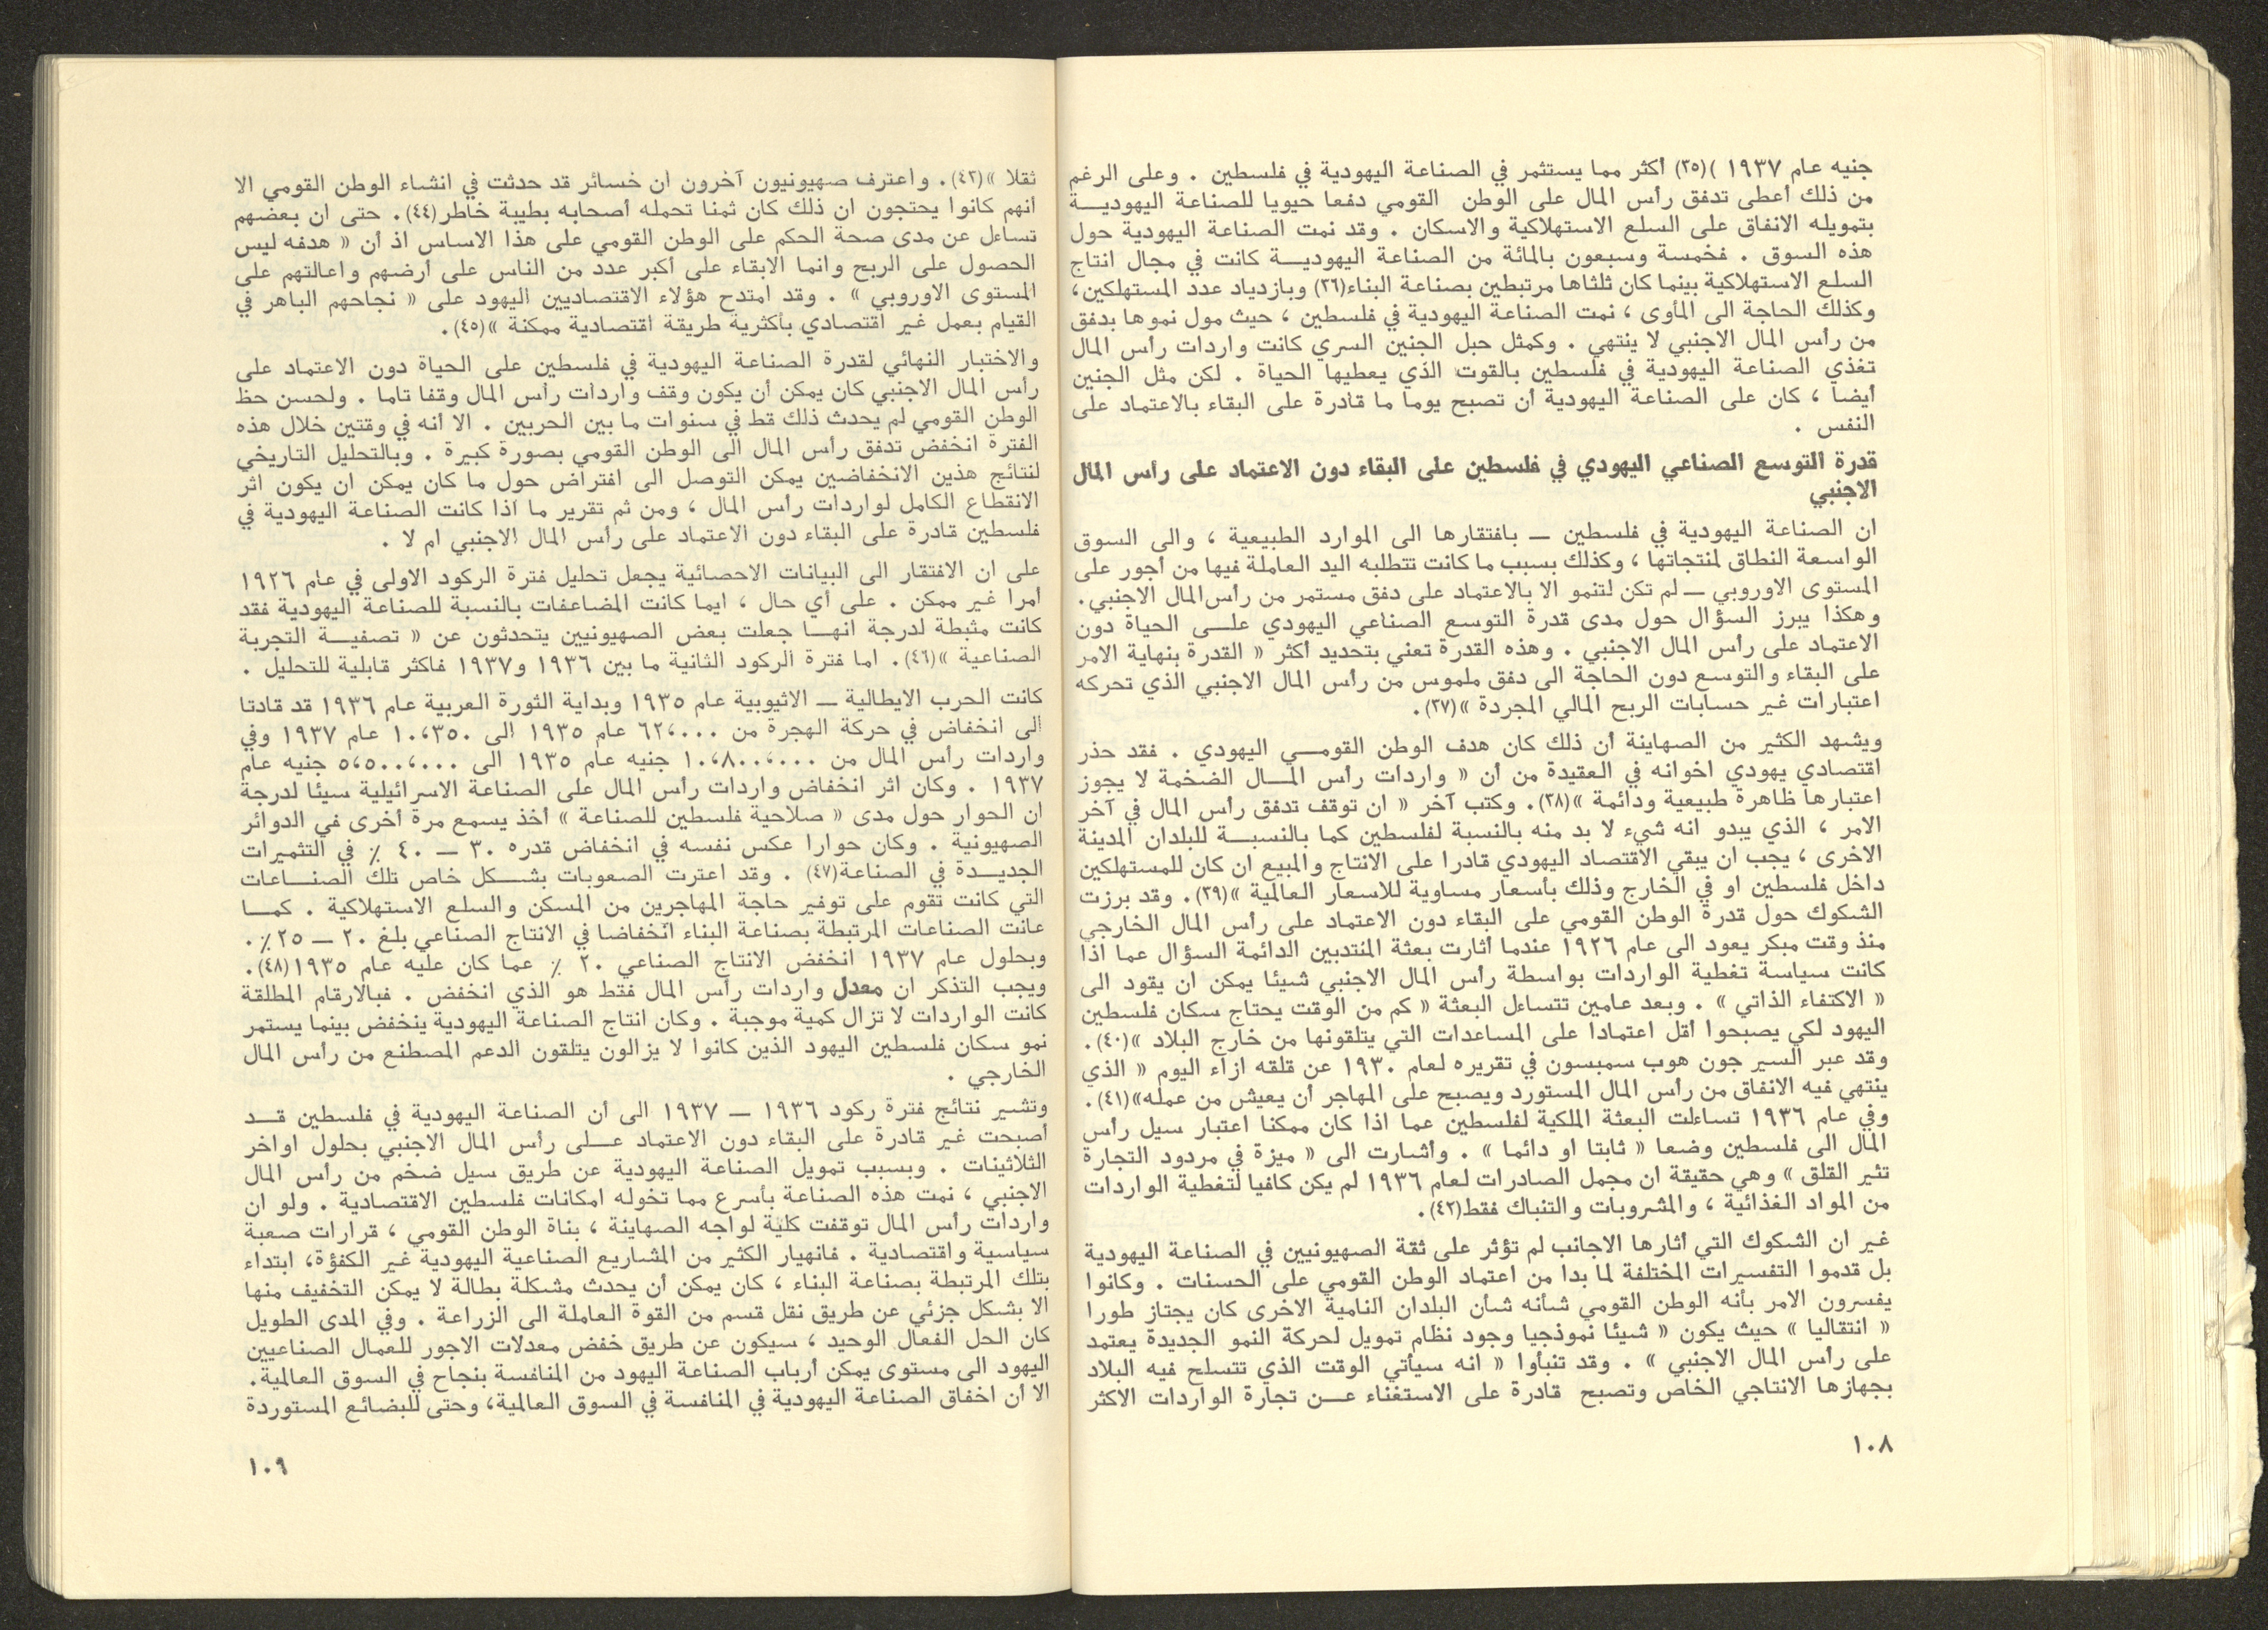 جنيه عام ١٩٣٧ )(٣٥) أكثر مما يستثمر في الصناعة اليهودية في فلسطين . وعلى الرغم
من ذلك أعطى تدفق رأس المال على الوطن القومي دفعا حيويا للصناعة اليهوديـــة
بتمويله الانفاق على السلع الاستهلاكية والاسكان . وقد نمت الصناعة اليهودية حول
هذه السوق . فخمسة وسبعون بالمائة من الصناعة اليهوديـــة كانت في مجال انتاج
السلع الاستهلاكية بينما كان ثلثاها مرتبطين بصناعة البناء(٣٦) وبازدياد عدد المستهلكين،
وكذلك الحاجة الى المأوى ، نمت الصناعة اليهودية في فلسطين ، حيث مول نموها بدفق
من رأس المال الاجنبي لا ينتهي . وكمثل حبل الجنين السري كانت واردات رأس المال
تغذي الصناعة اليهودية في فلسطين بالقوت الذي يعطيها الحياة . لكن مثل الجنين
أيضا ، كان على الصناعة اليهودية أن تصبح يوما ما قادرة على البقاء بالاعتماد على
النفس .
قدرة التوسع الصناعي اليهودي في فلسطين على البقاء دون الاعتماد على رأس المال
الاجنبي
ان الصناعة اليهودية في فلسطين ـــ بافتقارها الى الموارد الطبيعية ، والى السوق
الواسعة النطاق لمنتجاتها ، وكذلك بسبب ما كانت تتطلبه اليد العاملة فيها من أجور على
المستوى الاوروبي ـــ لم تكن لتنمو الا بالاعتماد على دفق مستمر من رأس المال الاجنبي.
وهكذا يبرز السؤال حول مدى قدرة التوسع الصناعي اليهودي علـــى الحياة دون
الاعتماد على رأس المال الاجنبي . وهذه القدرة تعني بتحديد أكثر « القدرة بنهاية الامر
على البقاء والتوسع دون الحاجة الى دفق ملموس من رأس المال الاجنبي الذي تحركه
اعتبارات غير حسابات الربح المالي المجردة »(٣٧).
ويشهد الكثير من الصهاينة أن ذلك كان هدف الوطن القومـــي اليهودي . فقد حذر
اقتصادي يهودي اخوانه في العقيدة من أن « واردات رأس المـــال الضخمة لا يجوز
اعتبارها ظاهرة طبيعية ودائمة »(٣٨). وكتب آخر « ان توقف تدفق رأس المال في آخر
الامر ، الذي يبدو انه شيء لا بد منه بالنسبة لفلسطين كما بالنسبـــة للبلدان المدينة
الاخرى ، يجب ان يبقي الاقتصاد اليهودي قادرا على الانتاج والمبيع ان كان للمستهلكين
داخل فلسطين او في الخارج وذلك بأسعار مساوية للاسعار العالمية »(٣٩). وقد برزت
الشكوك حول قدرة الوطن القومي على البقاء دون الاعتماد على رأس المال الخارجي
منذ وقت مبكر يعود الى عام ١٩٢٦ عندما أثارت بعثة المنتدبين الدائمة السؤال عما اذا
كانت سياسة تغطية الواردات بواسطة رأس المال الاجنبي شيئا يمكن ان يقود الى
« الاكتفاء الذاتي » . وبعد عامين تتساءل البعثة « كم من الوقت يحتاج سكان فلسطين
اليهود لكي يصبحوا أقل اعتمادا على المساعدات التي يتلقونها من خارج البلاد »(٤٠).
وقد عبر السير جون هوب سمبسون في تقريره لعام ١٩٣٠ عن قلقه ازاء اليوم « الذي
ينتهي فيه الانفاق من رأس المال المستورد ويصبح على المهاجر أن يعيش من عمله»(٤١).
وفي عام ١٩٣٦ تساءلت البعثة الملكية لفلسطين عما اذا كان ممكنا اعتبار سيل رأس
المال الى فلسطين وضعا « ثابتا او دائما » . وأشارت الى « ميزة في مردود التجارة
تثير القلق » وهي حقيقة ان مجمل الصادرات لعام ١٩٣٦ لم يكن كافيا لتغطية الواردات
من المواد الغذائية ، والمشروبات والتنباك فقط(٤٢).
غير ان الشكوك التي أثارها الاجانب لم تؤثر على ثقة الصهيونيين في الصناعة اليهودية
بل قدموا التفسيرات المختلفة لما بدا من اعتماد الوطن القومي على الحسنات . وكانوا
يفسرون الامر بأنه الوطن القومي شأنه شأن البلدان النامية الاخرى كان يجتاز طورا
« انتقاليا » حيث يكون « شيئا نموذجيا وجود نظام تمويل لحركة النمو الجديدة يعتمد
على رأس المال الاجنبي » . وقد تنبأوا « انه سيأتي الوقت الذي تتسلح فيه البلاد
بجهازها الانتاجي الخاص وتصبح قادرة على الاستغناء عـــن تجارة الواردات الاكثر
١٠٨
ثقلا »(٤٣). واعترف صهيونيون آخرون ان خسائر قد حدثت في انشاء الوطن القومي الا
أنهم كانوا يحتجون ان ذلك كان ثمنا تحمله أصحابه بطيبة خاطر(٤٤). حتى ان بعضهم
تساءل عن مدى صحة الحكم على الوطن القومي على هذا الاساس اذ أن « هدفه ليس
الحصول على الربح وانما الابقاء على أكبر عدد من الناس على أرضهم واعالتهم على
المستوى الاوروبي » . وقد امتدح هؤلاء الاقتصاديين اليهود على « نجاحهم الباهر في
القيام بعمل غير اقتصادي بأكثرية طريقة اقتصادية ممكنة »(٤٥).
والاختبار النهائي لقدرة الصناعة اليهودية في فلسطين على الحياة دون الاعتماد على
رأس المال الاجنبي كان يمكن أن يكون وقف واردات رأس المال وقفا تاما . ولحسن حظ
الوطن القومي لم يحدث ذلك قط في سنوات ما بين الحربين . الا أنه في وقتين خلال هذه
الفترة انخفض تدفق رأس المال الى الوطن القومي بصورة كبيرة . وبالتحليل التاريخي
لنتائج هذين الانخفاضين يمكن التوصل الى افتراض حول ما كان يمكن ان يكون اثر
الانقطاع الكامل لواردات رأس المال ، ومن ثم تقرير ما اذا كانت الصناعة اليهودية في
فلسطين قادرة على البقاء دون الاعتماد على رأس المال الاجنبي ام لا .
على ان الافتقار الى البيانات الاحصائية يجعل تحليل فترة الركود الاولى في عام ١٩٢٦
أمرا غير ممكن . على أي حال ، ايما كانت المضاعفات بالنسبة للصناعة اليهودية فقد
كانت مثبطة لدرجة انهـــا جعلت بعض الصهيونيين يتحدثون عن « تصفيـــة التجربة
الصناعية »(٤٦). اما فترة الركود الثانية ما بين ١٩٣٦ و١٩٣٧ فاكثر قابلية للتحليل .
كانت الحرب الايطالية ـــ الاثيوبية عام ١٩٣٥ وبداية الثورة العربية عام ١٩٣٦ قد قادتا
الى انخفاض في حركة الهجرة من ٦٢،٠٠٠ عام ١٩٣٥ الى ١٠،٣٥٠ عام ١٩٣٧ وفي
واردات رأس المال من ١٠،٨٠٠،٠٠٠ جنيه عام ١٩٣٥ الى ٥،٥٠٠،٠٠٠ جنيه عام
١٩٣٧ . وكان اثر انخفاض واردات رأس المال على الصناعة الاسرائيلية سيئا لدرجة
ان الحوار حول مدى « صلاحية فلسطين للصناعة » أخذ يسمع مرة أخرى في الدوائر
الصهيونية . وكان حوارا عكس نفسه في انخفاض قدره ٣٠ ـــ ٤٠ ٪ في التثميرات
الجديـــدة في الصناعة(٤٧) . وقد اعترت الصعوبات بشـــكل خاص تلك الصنـــاعات
التي كانت تقوم على توفير حاجة المهاجرين من المسكن والسلع الاستهلاكية . كمـــا
عانت الصناعات المرتبطة بصناعة البناء انخفاضا في الانتاج الصناعي بلغ ٢٠ ـــ ٢٥٪.
وبحلول عام ١٩٣٧ انخفض الانتاج الصناعي ٢٠ ٪ عما كان عليه عام ١٩٣٥(٤٨).
ويجب التذكر ان معدل واردات رأس المال فقط هو الذي انخفض . فبالارقام المطلقة
كانت الواردات لا تزال كمية موجبة . وكان انتاج الصناعة اليهودية ينخفض بينما يستمر
نمو سكان فلسطين اليهود الذين كانوا لا يزالون يتلقون الدعم المصطنع من رأس المال
الخارجي .
وتشير نتائج فترة ركود ١٩٣٦ ـــ ١٩٣٧ الى أن الصناعة اليهودية في فلسطين قـــد
أصبحت غير قادرة على البقاء دون الاعتماد عـــلى رأس المال الاجنبي بحلول اواخر
الثلاثينات . وبسبب تمويل الصناعة اليهودية عن طريق سيل ضخم من رأس المال
الاجنبي ، نمت هذه الصناعة بأسرع مما تخوله امكانات فلسطين الاقتصادية . ولو ان
واردات رأس المال توقفت كلية لواجه الصهاينة ، بناة الوطن القومي ، قرارات صعبة
سياسية واقتصادية . فانهيار الكثير من المشاريع الصناعية اليهودية غير الكفؤة، ابتداء
بتلك المرتبطة بصناعة البناء ، كان يمكن أن يحدث مشكلة بطالة لا يمكن التخفيف منها
الا بشكل جزئي عن طريق نقل قسم من القوة العاملة الى الزراعة . وفي المدى الطويل
كان الحل الفعال الوحيد ، سيكون عن طريق خفض معدلات الاجور للعمال الصناعيين
اليهود الى مستوى يمكن أرباب الصناعة اليهود من المنافسة بنجاح في السوق العالمية.
الا أن اخفاق الصناعة اليهودية في المنافسة في السوق العالمية، وحتى للبضائع المستوردة
١٠٩